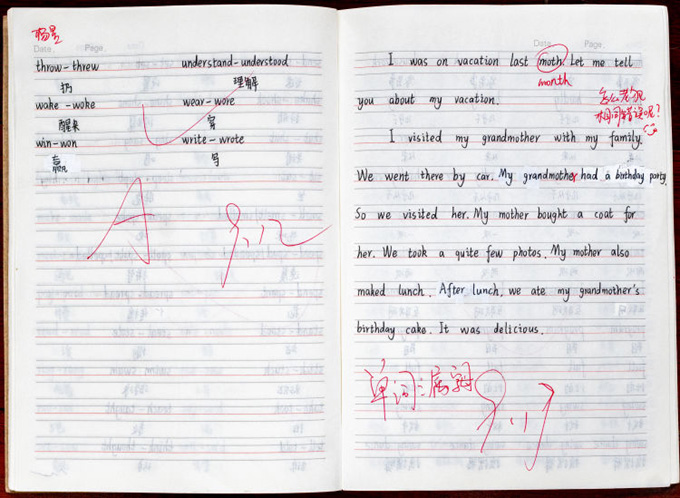 Date. Page.
throw-threw understand-understood
扔 理解
wake-woke wear-wore
醒来 穿
win-won write-wrote
赢 写
A 9.12
Date. Page.
I was on vacation last moth. Let me tell
month
you about my vacation.
怎么老犯
相同错误呢?
I visited my grandmother with my family.
We went there by car. My grandmother had a birthday party.
So we visited her. My mother bought a coat for
her. We took a quite few photos. My mothor also
maked lunch. After lunch, we ate my grandmother's
birthday cake. It was delicious.
单词: